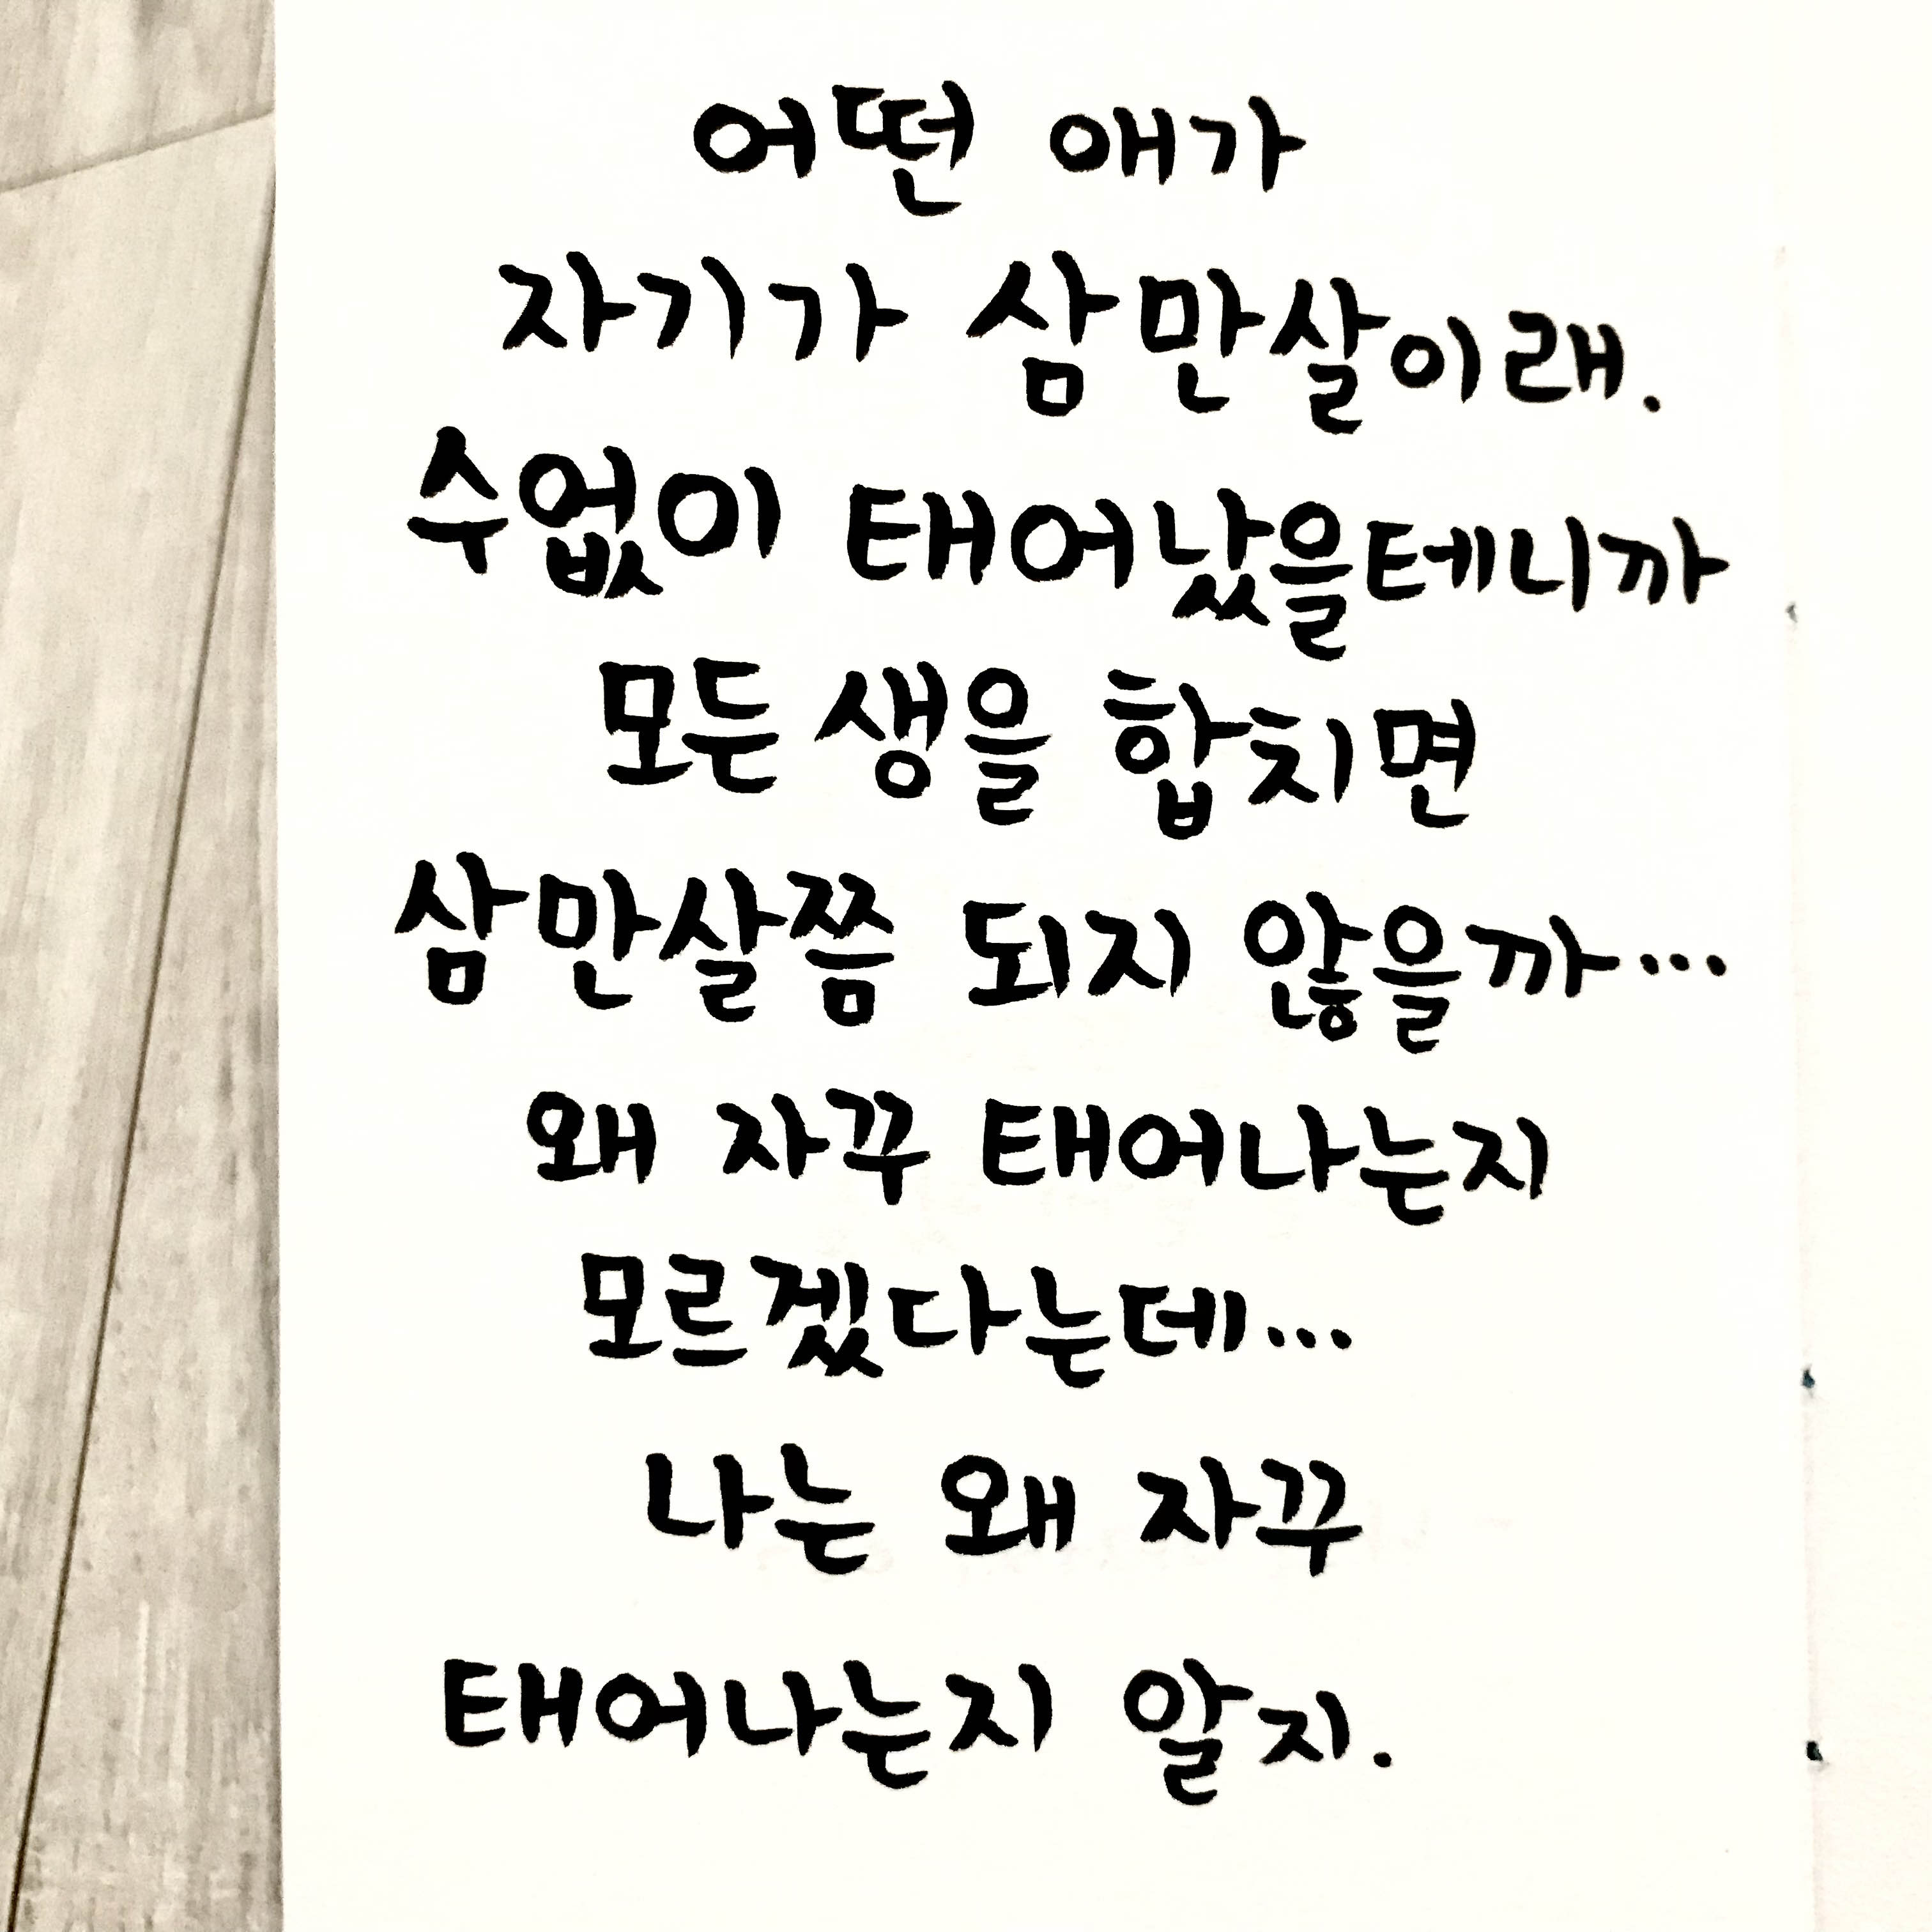 어떤 애가
자기가 삼만살이래.
수없이 태어났을테니까
모든 생을 합치면
삼만살쯤 되지 않을까...
왜 자꾸 태어나는지
모르겠다는데...
나는 왜 자꾸
태어나는지 알지.